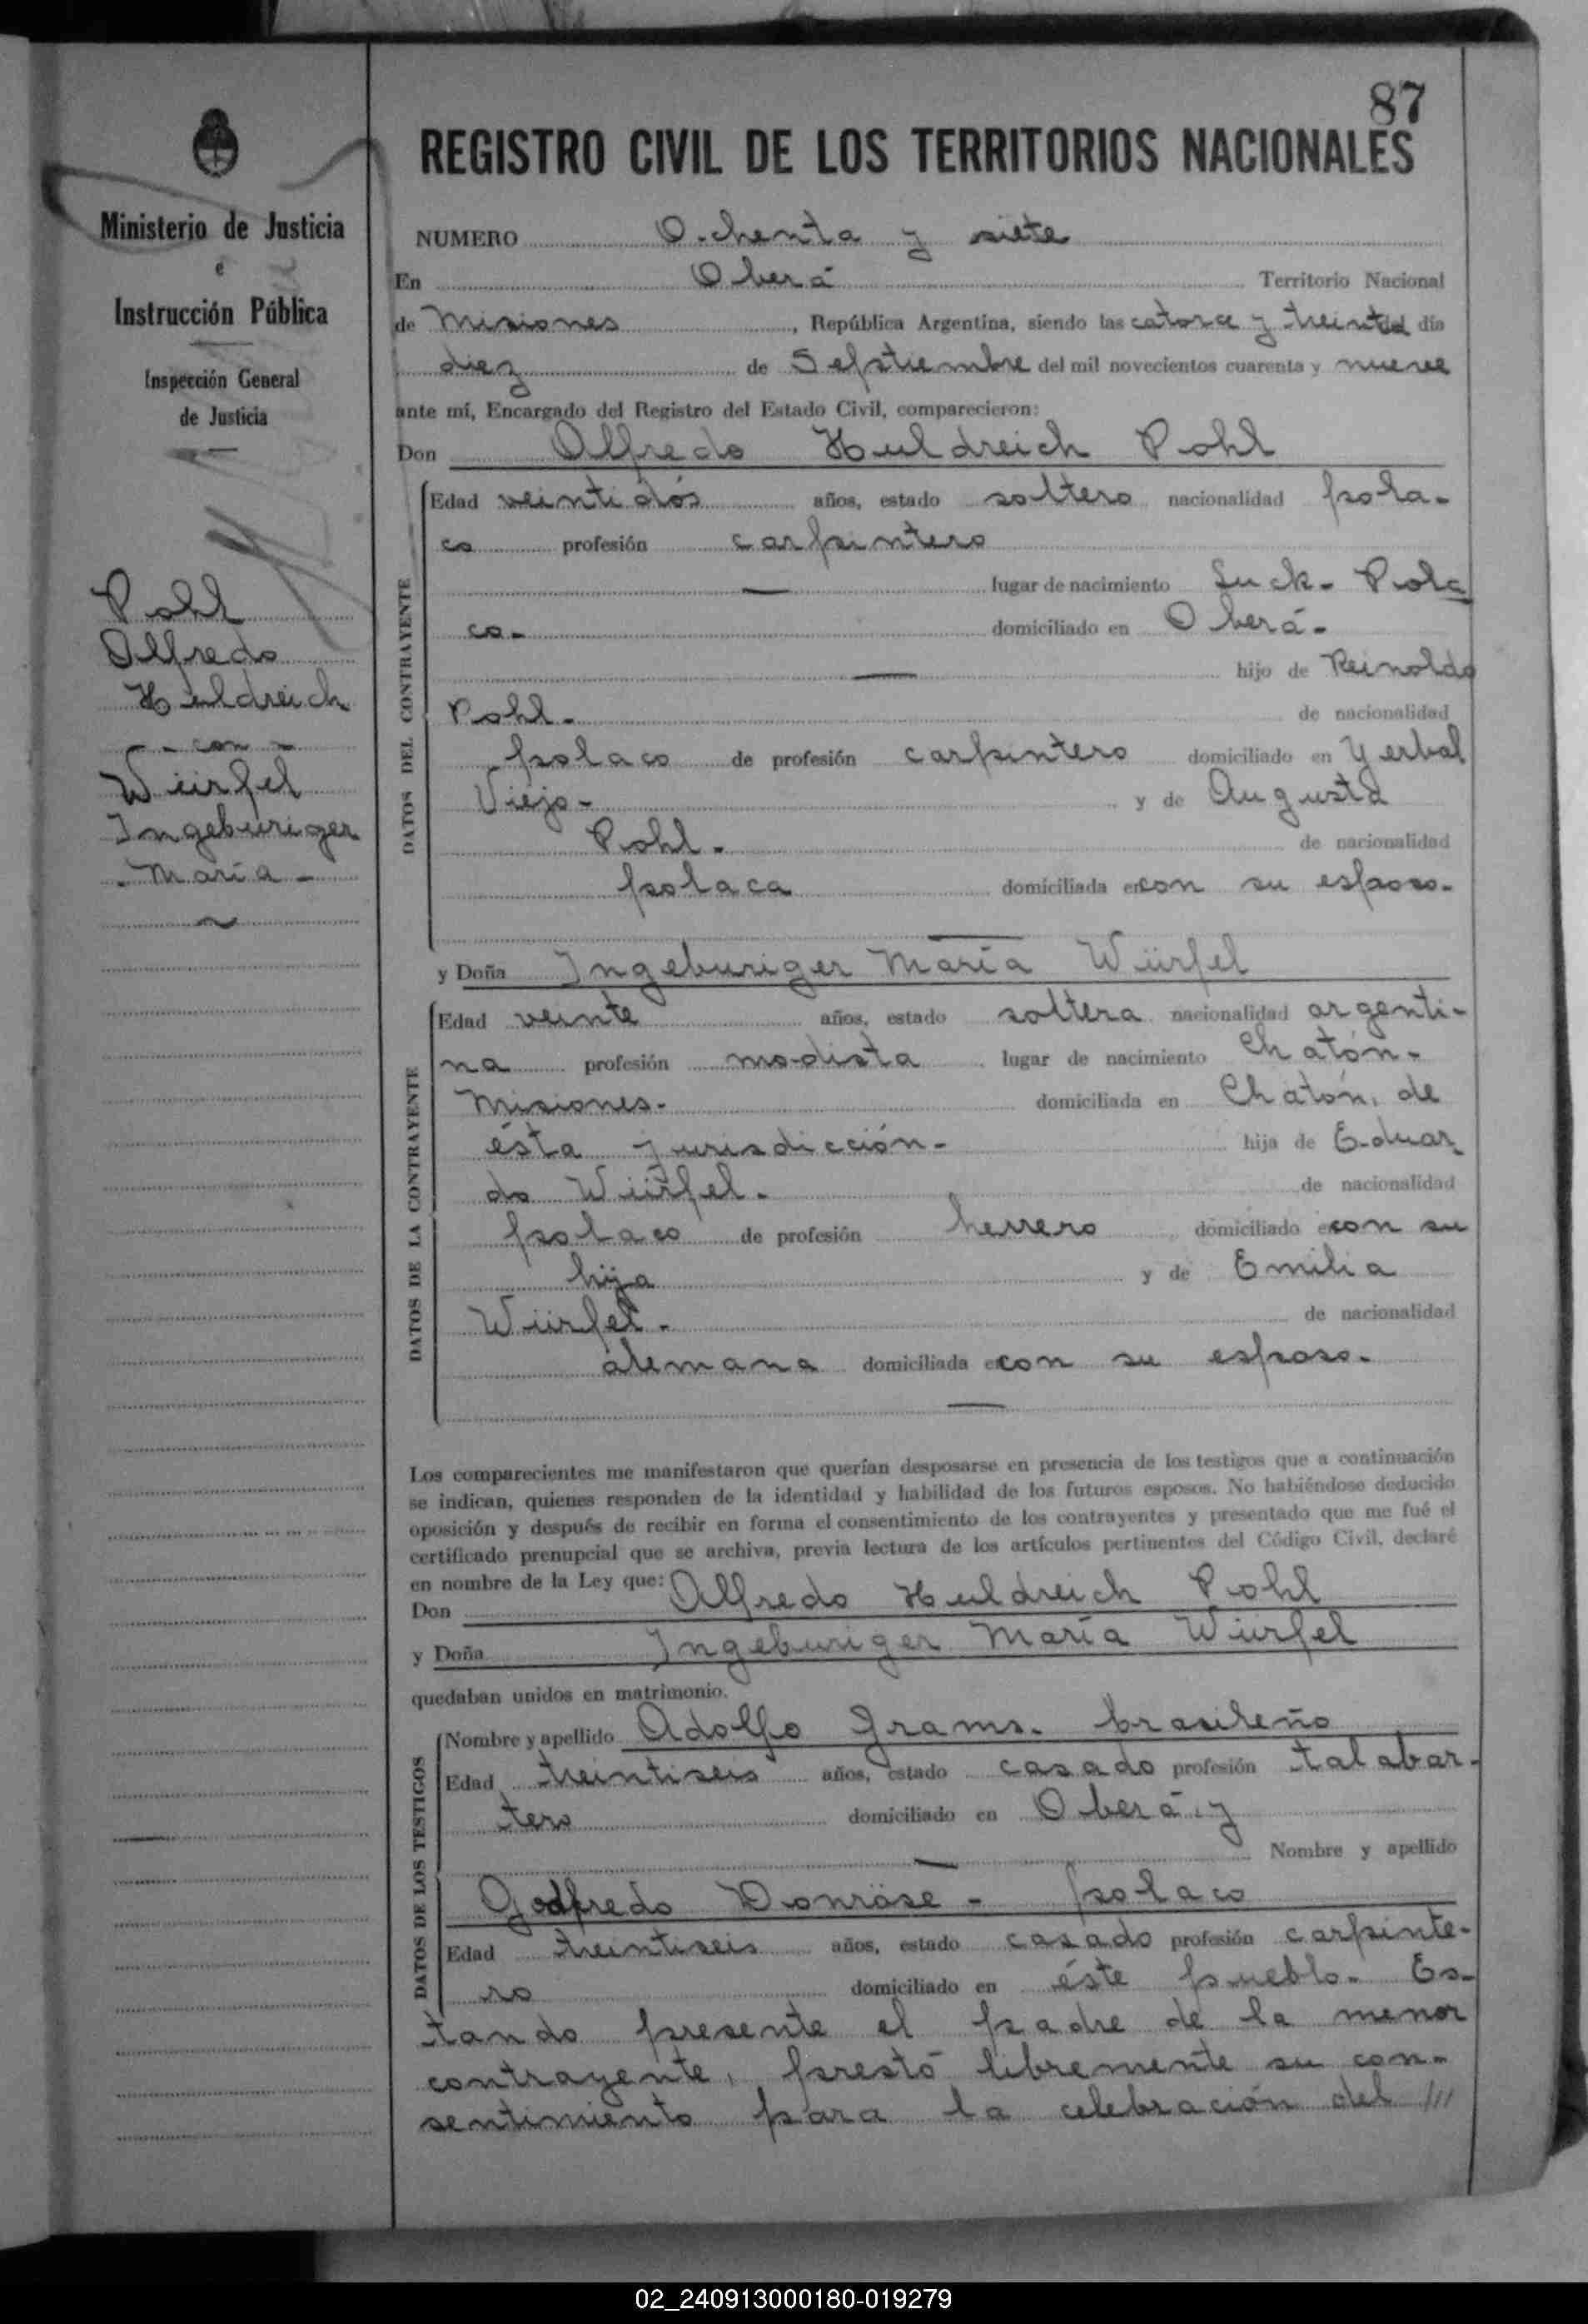 87
REGISTRO CIVIL DE LOS TERRITORIOS NACIONALES
Ministerio de Justicia
e
Instrucción Pública
Inspección General
de Justicia
Pohl
Alfredo
Huldreich
- con -
Würfel
Ingeburiger
- María -
NUMERO Ochenta y siete
En Oberá Territorio Nacional
de Misiones, República Argentina, siendo las catorce y treinta del día
diez de Sepstiembre del mil novecientos cuarenta y nueve
ante mí, Encargado del Registro del Estado Civil, comparecieron:
Don Alfredo Huldreich Pohl
DATOS DEL CONTRAYENTE
Edad veintidós años, estado soltero nacionalidad pola-
co profesión carpintero
— lugar de nacimiento Luck - Pola
co - domiciliado en Oberá -
— hijo de Reinoldo
Pohl - de nacionalidad
polaco de profesión carpintero domiciliado en Yerbal
Viejo - y de Augusta
Pohl - de nacionalidad
polaca domiciliada en con su esposo -
—
y Doña Ingeburiger María Würfel
DATOS DE LA CONTRAYENTE
Edad veinte años, estado soltera nacionalidad argenti-
na profesión modista lugar de nacimiento Chatón -
Misiones - domiciliada en Chatón, de
ésta jurisdicción - hija de Eduar
do Würfel - de nacionalidad
polaco de profesión herrero domiciliado en con su
hija y de Emilia
Würfel - de nacionalidad
alemana domiciliada en con su esposo -
—
Los comparecientes me manifestaron que querían desposarse en presencia de los testigos que a continuación
se indican, quienes responden de la identidad y habilidad de los futuros esposos. No habiéndose deducido
oposición y después de recibir en forma el consentimiento de los contrayentes y presentado que me fué el
certificado prenupcial que se archiva, previa lectura de los artículos pertinentes del Código Civil, declaré
en nombre de la Ley que:
Don Alfredo Huldreich Pohl
y Doña Ingeburiger María Würfel
quedaban unidos en matrimonio.
DATOS DE LOS TESTIGOS
Nombre y apellido Adolfo Grams - brasileño
Edad treintiseis años, estado casado profesión talabar-
tero domiciliado en Oberá, y
— Nombre y apellido
Godfredo Donröse - polaco
Edad treintiseis años, estado casado profesión carpinte-
ro domiciliado en éste pueblo - Es-
tando presente el padre de la menor
contrayente, prestó libremente su con-
sentimiento para la celebración del ///
02_240913000180-019279